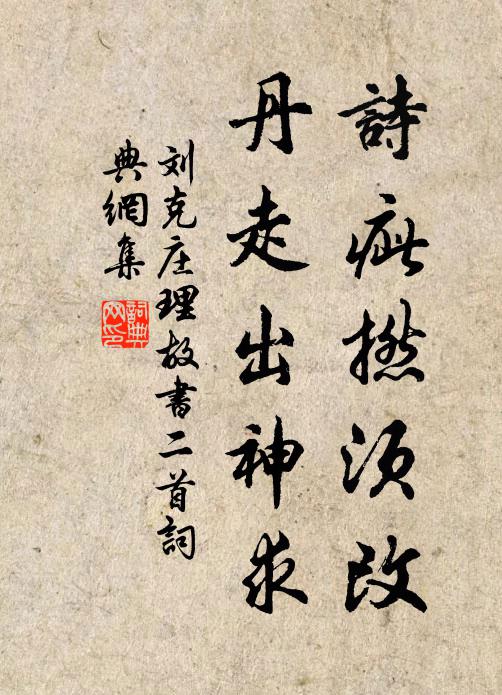 詩疵撚须改
丹走出神求
刘克庄理故书二首詞
典網集
詞典
网印